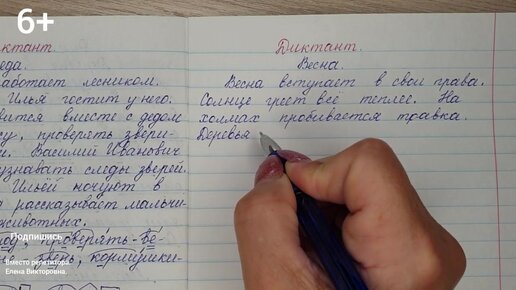 6+
иктант.
еда.
аботает лесником.
Илья гостит у него.
вится вместе с дедом
су, проверять звери-
й. Василий Иванович
узнавать следы зверей.
Ильёй ночуют в
рассказывает мальчи-
животных.
проверять - ве-
звень, кормушки-
Диктант.
Весна.
Весна вступает в свои права.
Солнце греет всё теплее. На
холмах пробивается травка.
Деревья
Подпишись
Вместо репетитора.
Елена Викторовна.